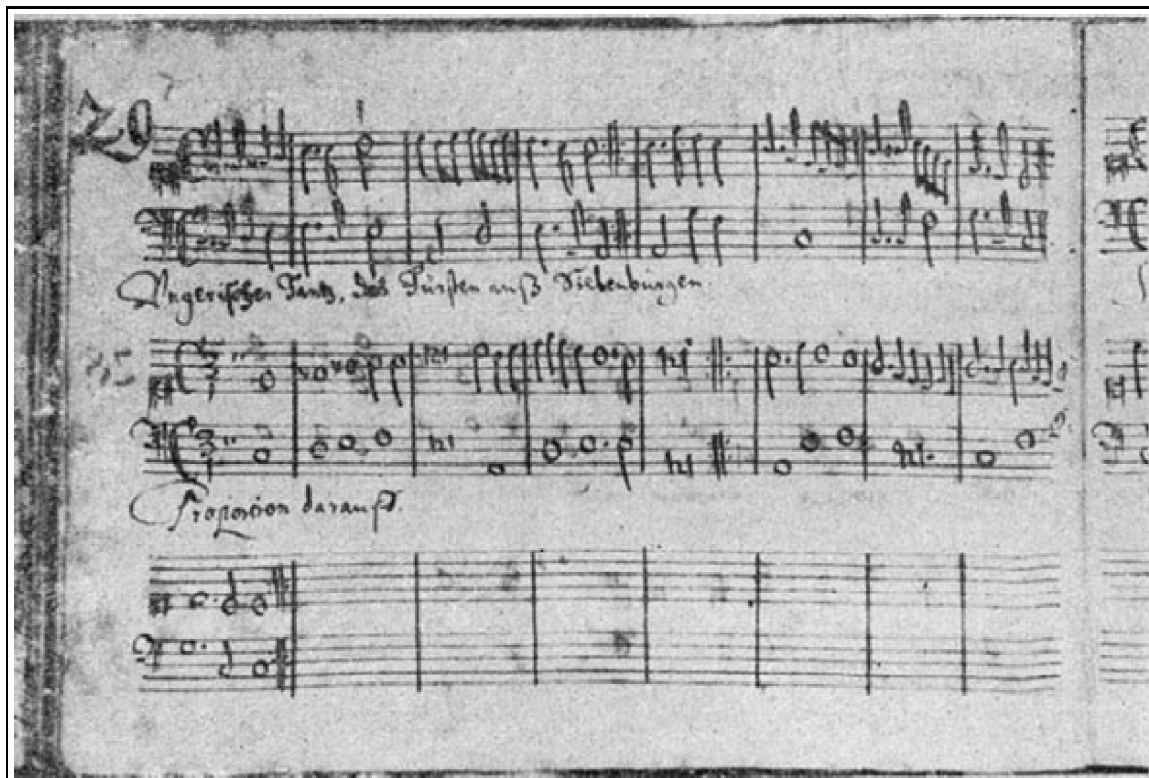 29
Ungerischer Tantz, des Fürsten auß Siebenbürgen
Proportion darauff.